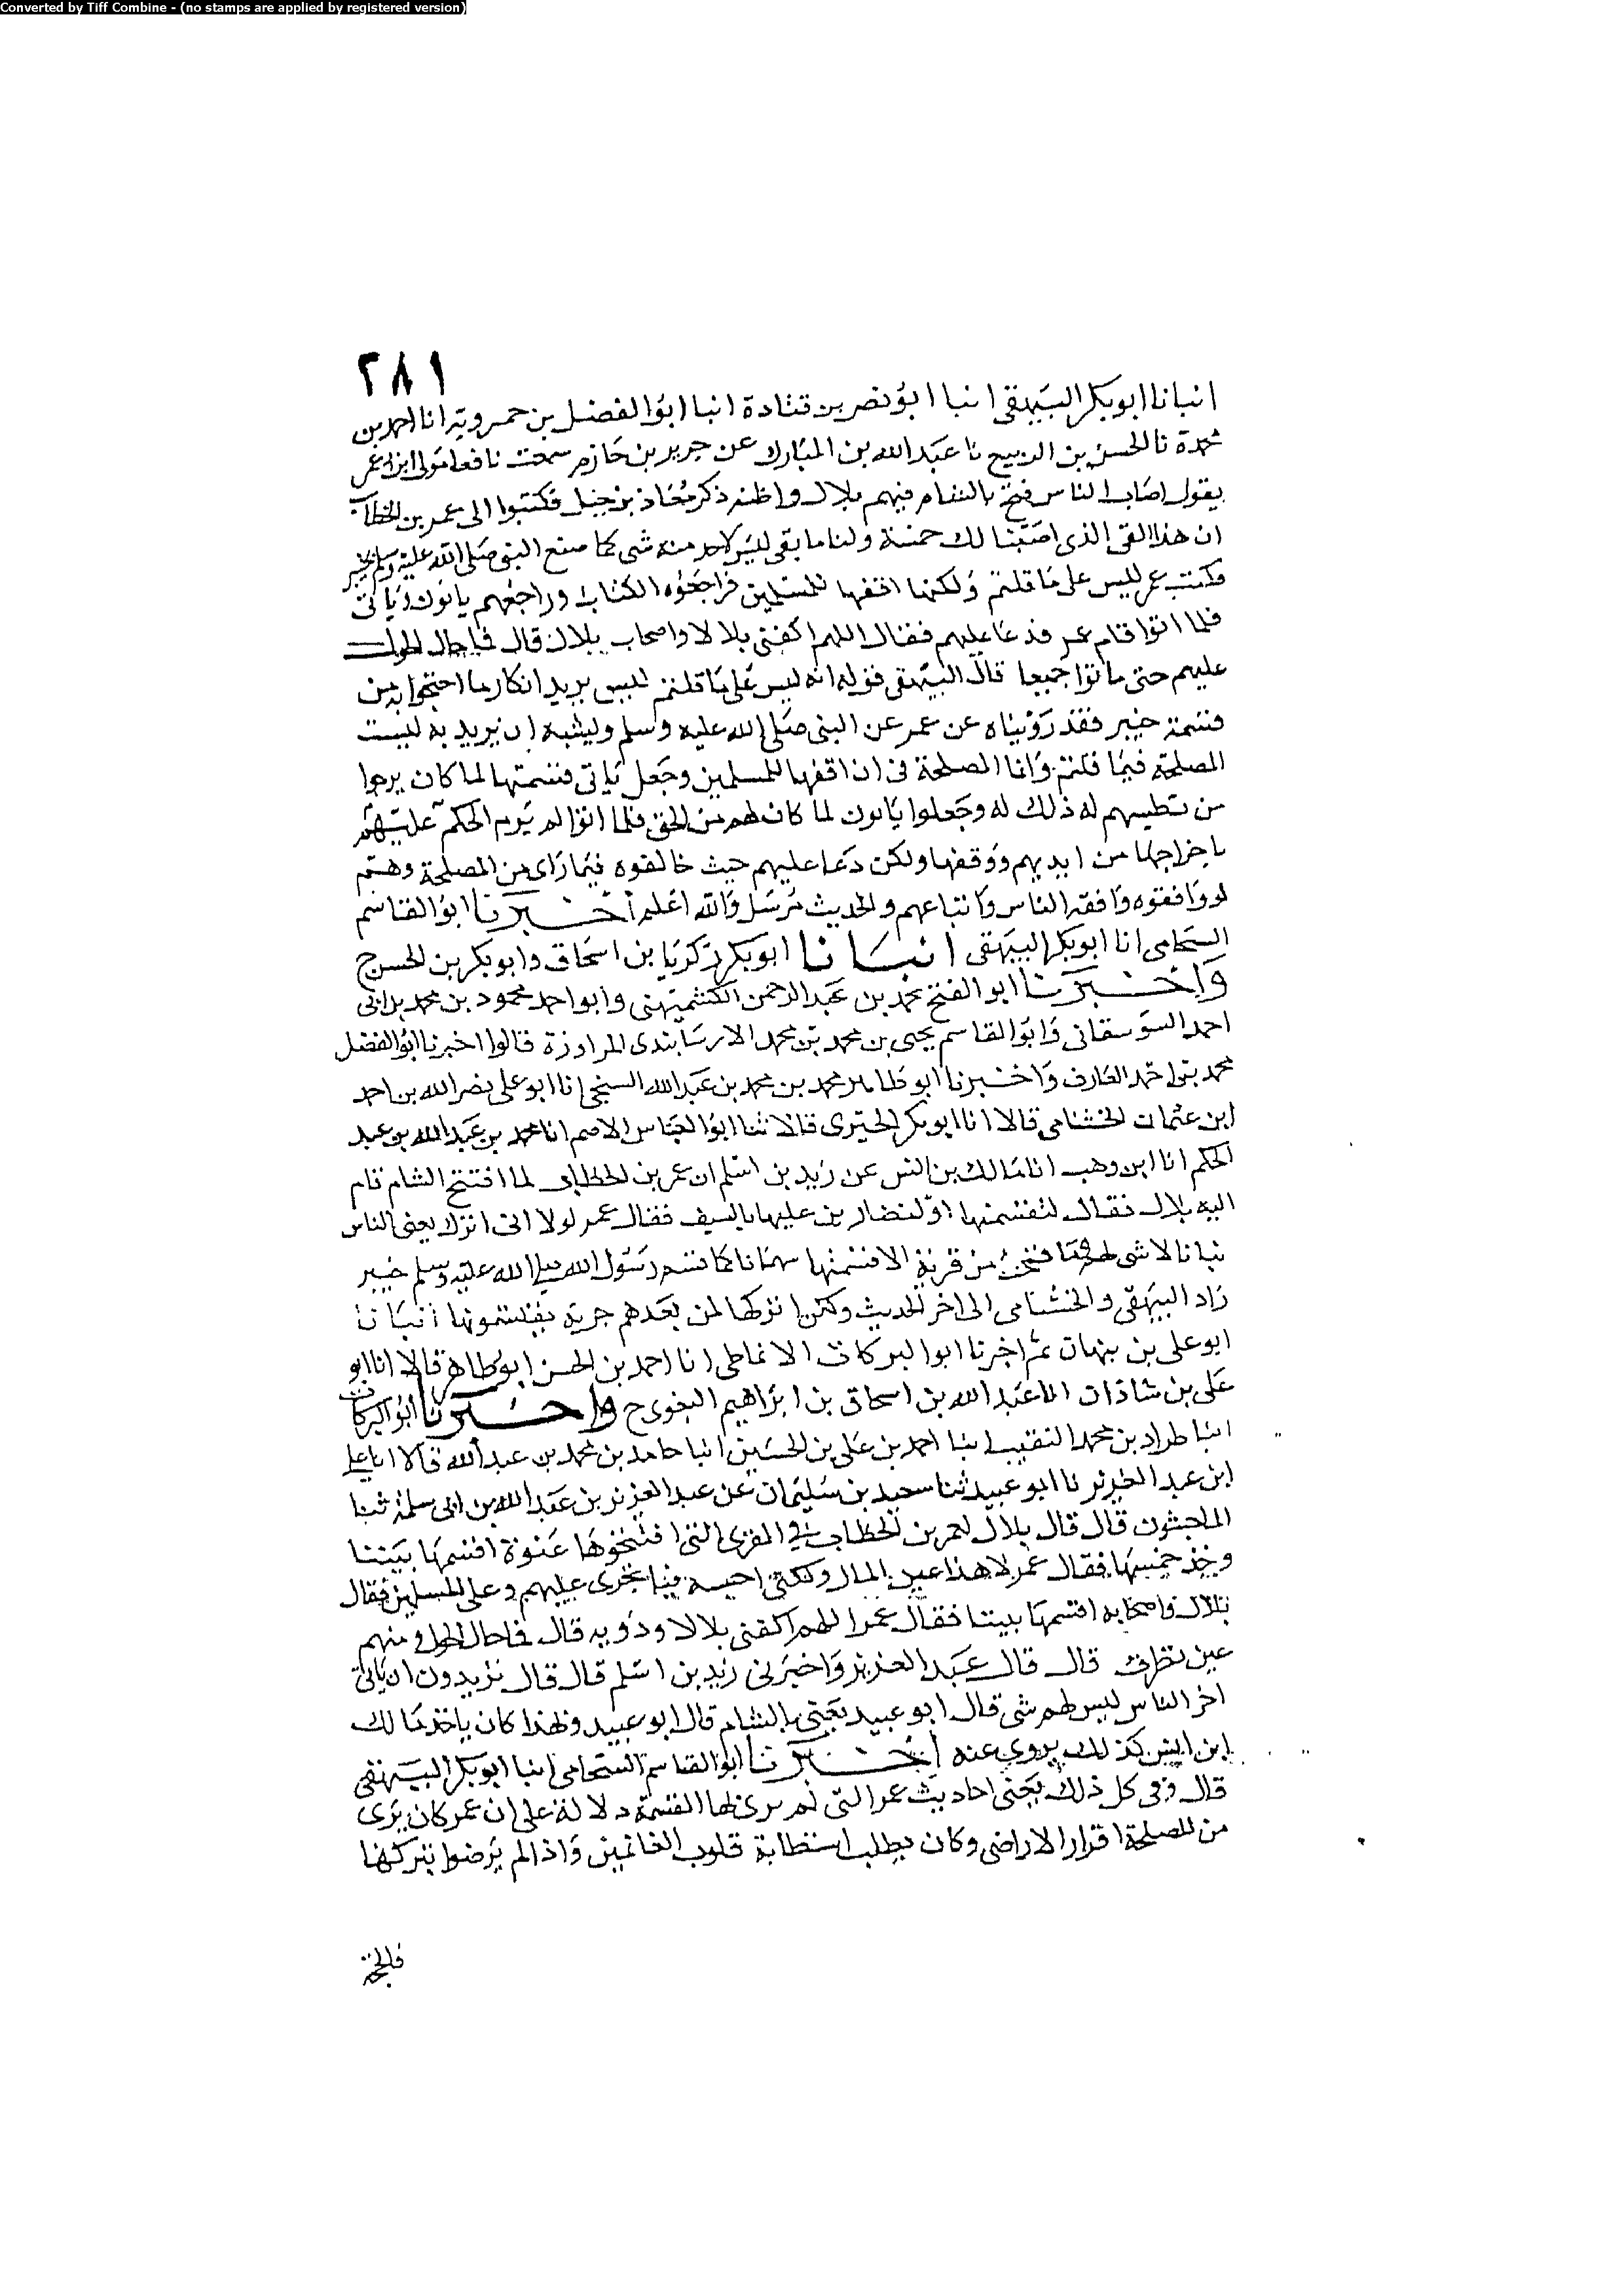 Converted by Tiff Combine - (no stamps are applied by registered version)
٢٨١
انبانا ابو بكر البيهقي انبا ابو نصر بن قتادة انبا ابو الفضل بن حمرويه انا احمد بن
نجدة نا الحسن بن الربيع نا عبد الله بن المبارك عن جرير بن حازم سمعت نافعا مولى ابن عمر
يقول اصاب الناس فتح بالشام فيهم بلال واظنه ذكر معاذ بن جبل فكتبوا الى عمر بن الخطاب
ان هذا الفي الذي اصبنا لك خمسة ولنا ما بقي ليس لاحد منه شي كما صنع النبي صلى الله عليه وسلم بخيبر
فكتب عمر ليس على ما قلتم ولكنها اقفها للمسلمين فراجعوه الكتاب وراجعهم يابون ويابى
فلما ابوا قام عمر فدعا عليهم فقال اللهم اكفني بلالا واصحاب بلال قال فما حال الحول
عليهم حتى ماتوا جميعا قال البيهقي قوله انه ليس على ما قلتم ليس يريد انكار ما احتجوا به من
قسمة خيبر فقد روينا عن عمر عن النبي صلى الله عليه وسلم وليشبه ان يريد به ليست
المصلحة فيما قلتم وانا المصلحة في ان اقفها للمسلمين وجعل يابى قسمتها لما كان يرجوا
من تطيبهم له ذلك له وجعلوا يابون لما كان لهم من الحق فلما ابوا لم يبرم الحكم عليهم
باخراجها من ايديهم ووقفها ولكن دعا عليهم حيث خالفوه فيما راى من المصلحة وهم
لو وافقوه وافقه الناس واتباعهم والحديث مرسل والله اعلم اخبرنا ابو القاسم
الشحامي انا ابو بكر البيهقي انبانا ابو بكر زكريا بن اسحاق وابو بكر بن الحسن ح
واخبرنا ابو الفتح محمد بن عبد الرحمن الكشميهني وابو احمد محمود بن محمد بن ابي
احمد السوسقاني وابو القاسم يحيى بن محمد بن محمد الارسابندي المراوزة قالوا اخبرنا ابو الفضل
محمد بن احمد العارف واخبرنا ابو طاهر محمد بن محمد بن عبد الله السنجي انا ابو علي نصر الله بن احمد
ابن عثمان الخشنامي قالا انا ابو بكر الحيري قالا ثنا ابو العباس الاصم انا محمد بن عبد الله بن عبد
الحكم انا ابن وهب انا مالك بن انس عن زيد بن اسلم ان عمر بن الخطاب لما افتتح الشام قام
اليه بلال فقال لتقسمنها او لنضاربن عليها بالسيف فقال عمر لولا اني اترك يعني الناس
ببانا لا شي لهم ما فتحت من قرية الا قسمتها سهمانا كما قسم رسول الله صلى الله عليه وسلم خيبر
زاد البيهقي والخشنامي الى اخر الحديث ولكن اتركها لمن بعدهم جرية يقتسمونها انبانا
ابو علي بن نبهان ثم اخبرنا ابو البركات الانماطي انا احمد بن الحسن ابو طاهر قالا انا ابو
علي بن شاذان انا عبد الله بن اسحاق بن ابراهيم البغوي ح واخبرنا ابو البركات
انبا طراد بن محمد النقيب انبا احمد بن علي بن الحسين انبا حامد بن محمد بن عبد الله قالا انا علي
ابن عبد العزيز نا ابو عبيد ثنا سعيد بن سليمان عن عبد العزيز بن عبد الله بن ابي سلمة ثنا
الماجشون قال قال بلال لعمر بن الخطاب في القرى التي افتتحوها عنوة اقسمها بيننا
وخذ خمسها فقال عمر لا هذا عين المال ولكني احبسه فيئا يجري عليهم وعلى المسلمين فقال
بلال واصحابه اقسمها بيننا فقال عمر اللهم اكفني بلالا وذويه قال فما حال الحول ومنهم
عين تطرف قال قال عبد العزيز واخبرني زيد بن اسلم قال قال تريدون ان ياتي
اخر الناس ليس لهم شي قال ابو عبيد يعني بالشام قال ابو عبيد وبهذا كان ياخذ مالك
ابن انس كذلك يروي عنه اخبرنا ابو القاسم الشحامي انبا ابو بكر البيهقي
قال وفي كل ذلك يعني احاديث عمر التي لم ير بها القسمة دلالة على ان عمر كان يرى
من المصلحة اقرار الاراضي وكان يطلب استطابة قلوب الغانمين واذا لم يرضوا بتركها
فالحجة